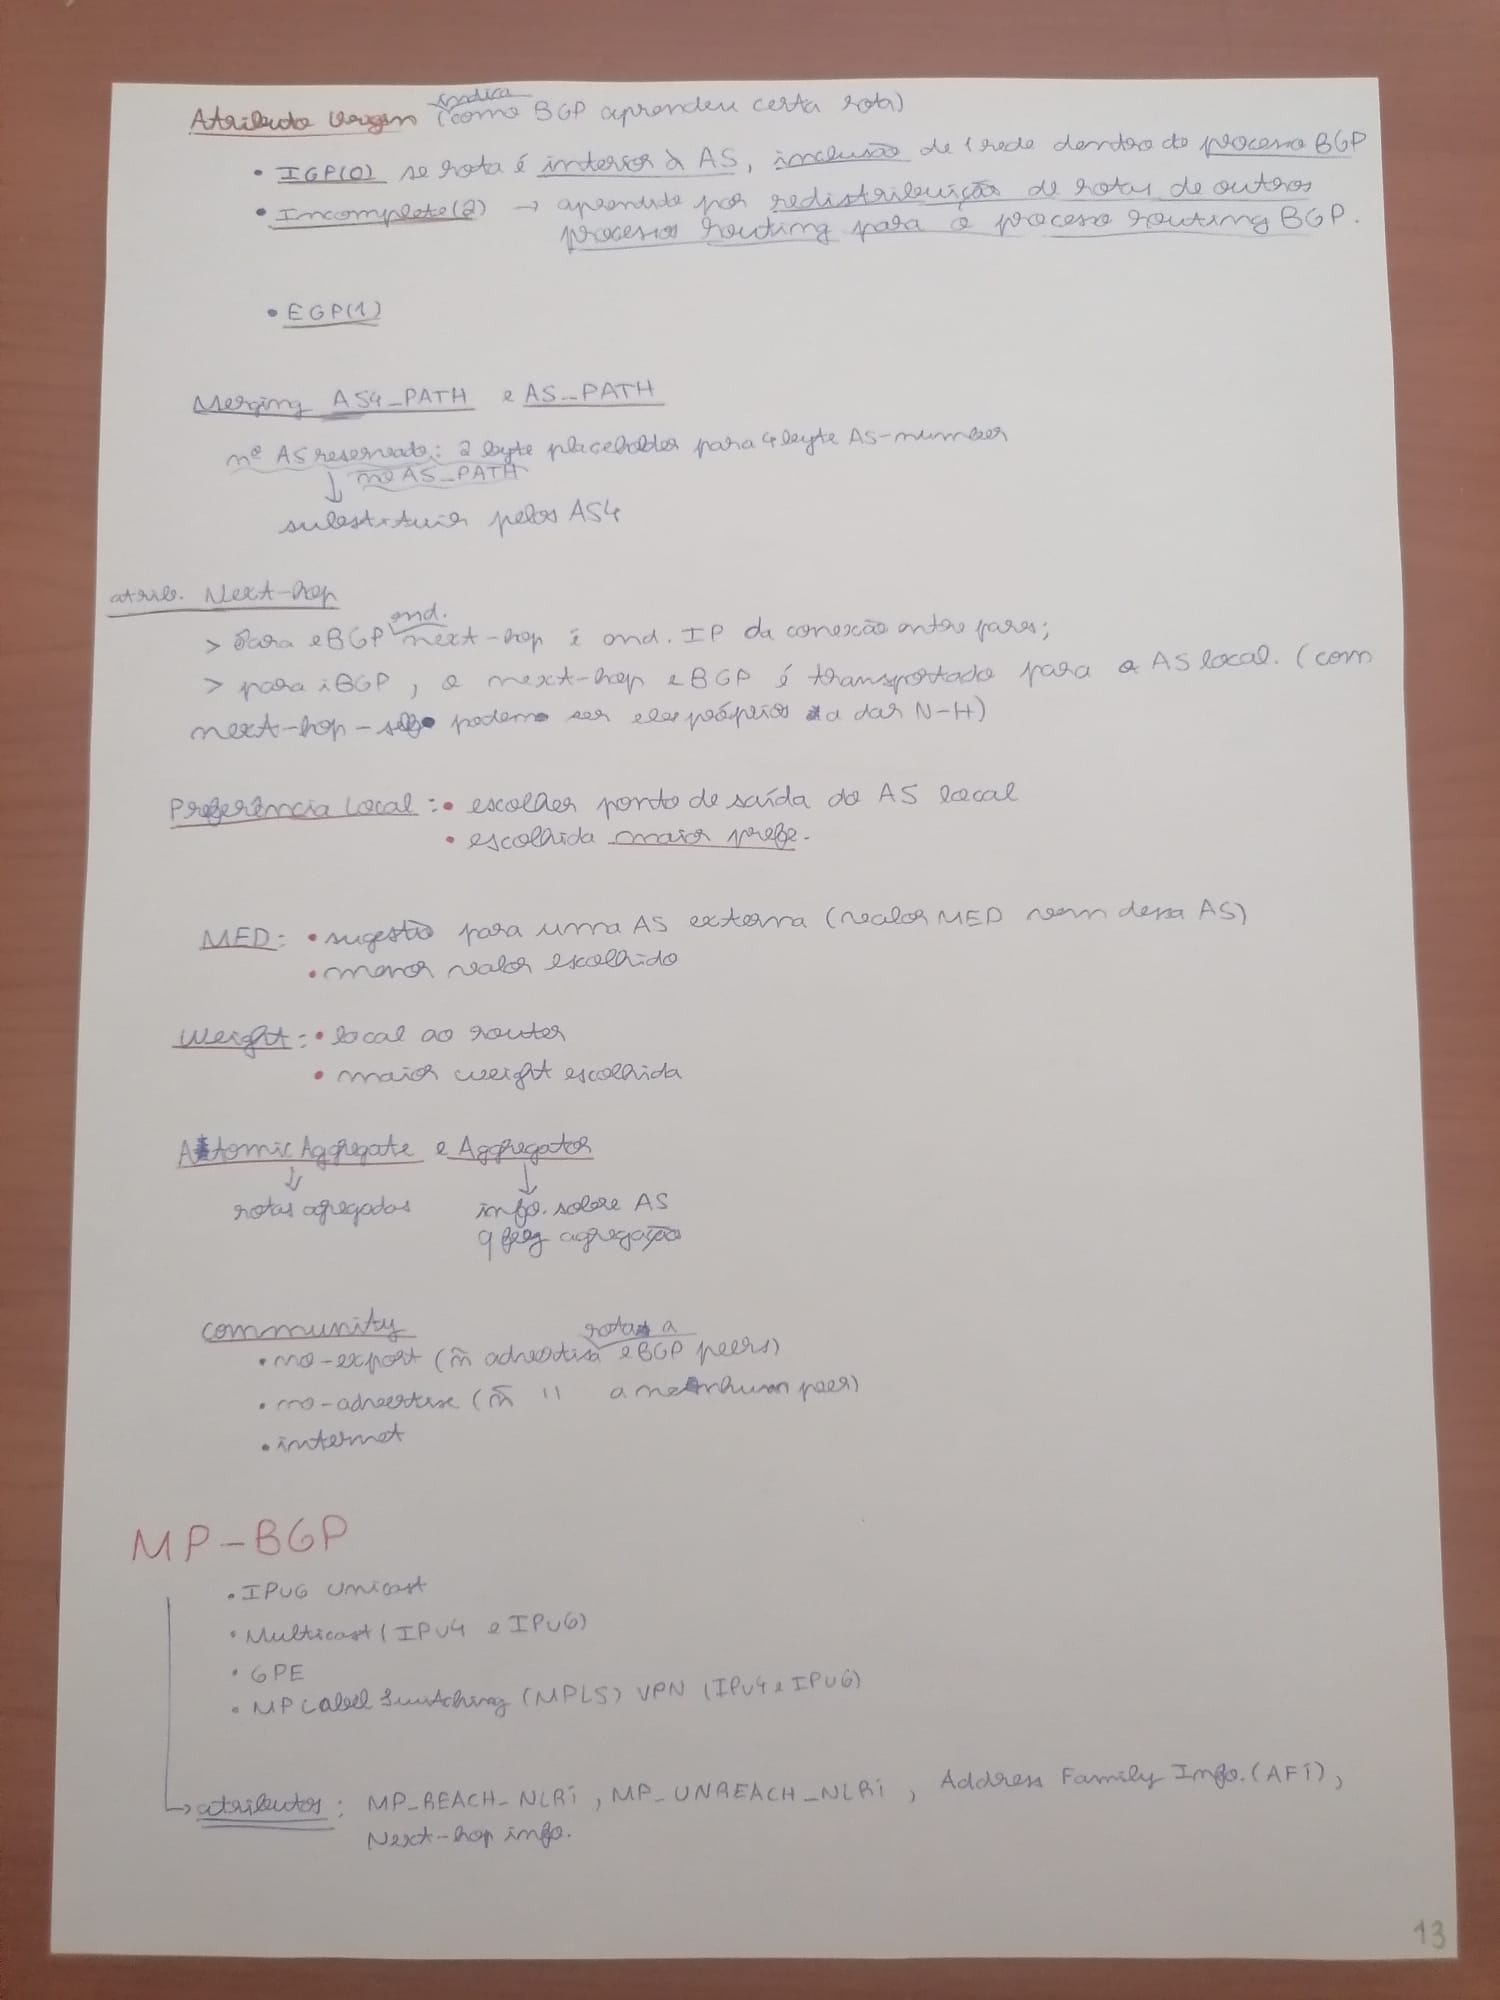 Atributo Origem (indica como BGP aprendeu certa rota)
• IGP(0) se rota é interior à AS, inclusão de 1 rede dentro do processo BGP
• Incomplete(2) → aprendida por redistribuição de rotas de outros
processos routing para o processo routing BGP.
• EGP(1)
Merging AS4_PATH e AS_PATH
nº AS reservado: 2 byte placeholder para 4 byte AS-number
no AS_PATH
↓
substituir pelos AS4
atrib. Next-hop
> Para eBGP end. next-hop é end. IP da conexão entre pares;
> para iBGP, o next-hop eBGP é transportado para a AS local. (com
next-hop-self podem ser eles próprios a dar N-H)
Preferência Local: • escolher ponto de saída do AS local
• escolhida maior pref.
MED: • sugestão para uma AS externa (valor MED vem dessa AS)
• menor valor escolhido
Weight: • local ao router
• maior weight escolhida
Atomic Aggregate e Aggregator
↓ ↓
rotas agregadas info. sobre AS
q fez agregação
Community
• no-export (ñ advertisa rotas a eBGP peers)
• no-advertise (ñ " a nenhum peer)
• internet
MP-BGP
• IPv6 Unicast
• Multicast (IPv4 e IPv6)
• 6PE
• MP Label Switching (MPLS) VPN (IPv4 e IPv6)
↳ atributos: MP_REACH_NLRi, MP_UNREACH_NLRi, Address Family Info. (AFi),
Next-hop info.
13